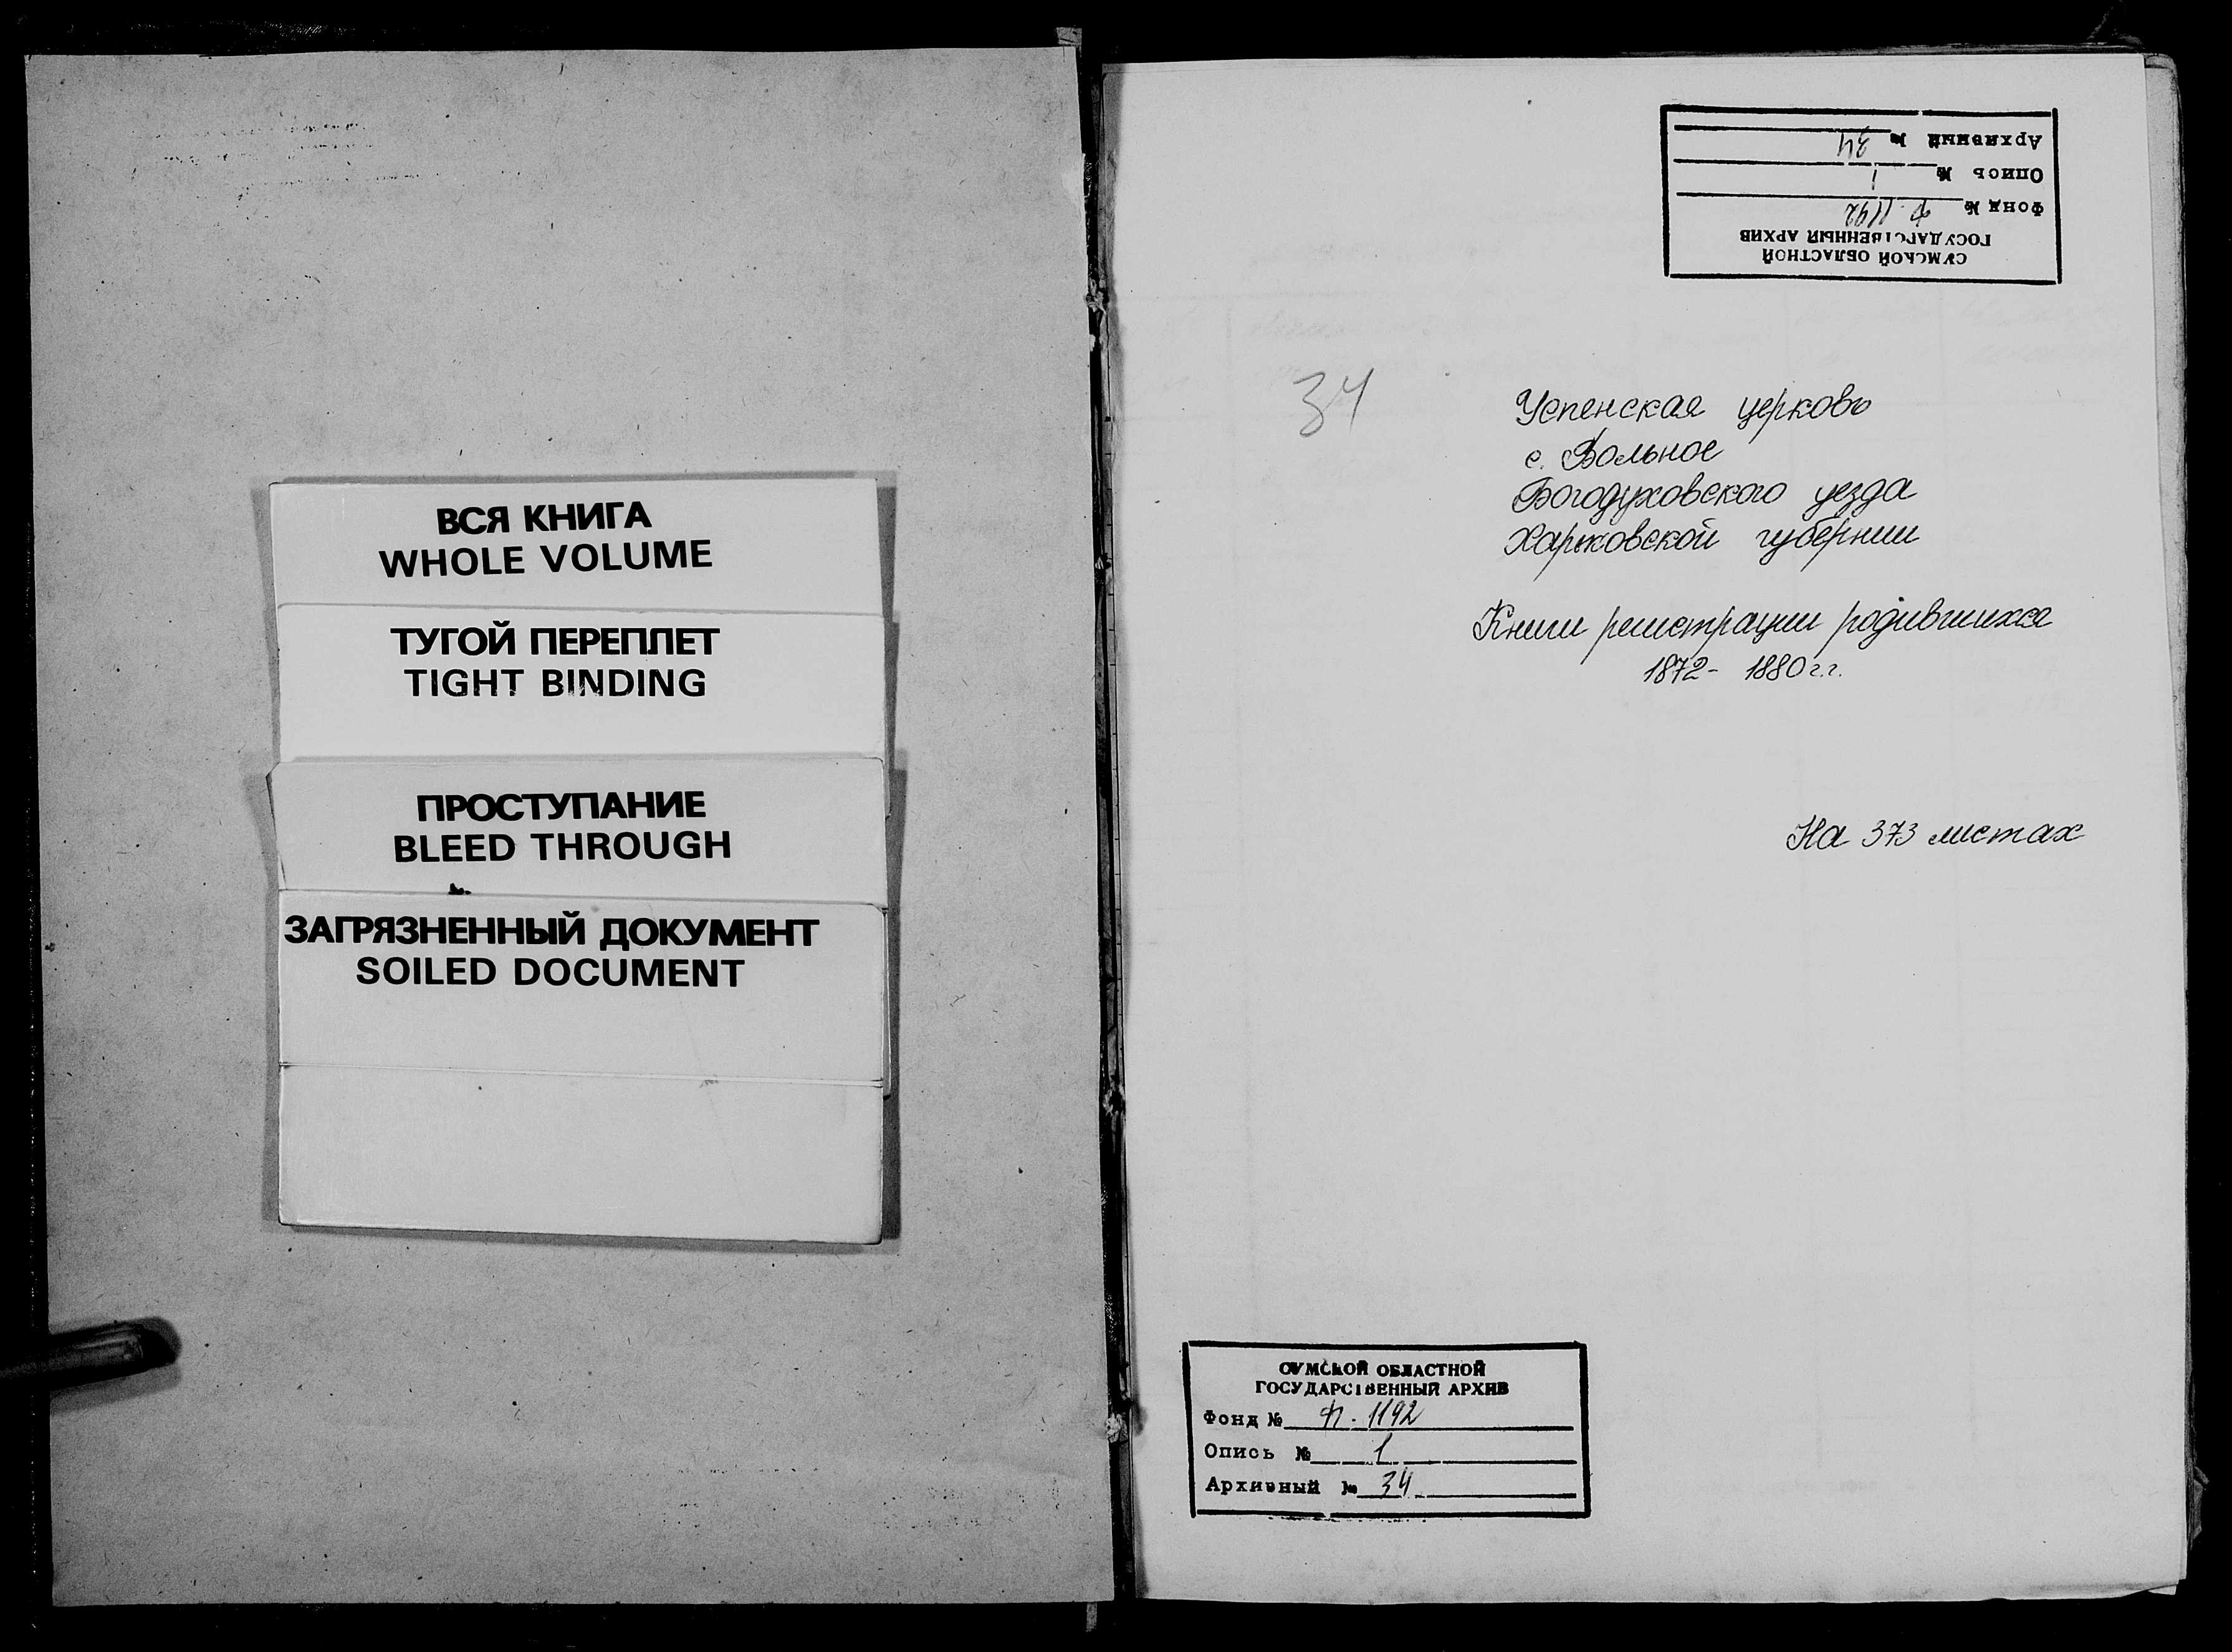 ВСЯ КНИГА
WHOLE VOLUME
ТУГОЙ ПЕРЕПЛЕТ
TIGHT BINDING
ПРОСТУПАНИЕ
BLEED THROUGH
ЗАГРЯЗНЕННЫЙ ДОКУМЕНТ
SOILED DOCUMENT
СУМСКОЙ ОБЛАСТНОЙ
ГОСУДАРСТВЕННЫЙ АРХИВ
Фонд № Ф. 1192
Опись № 1
Архивный № 34
34
Успенская церковь
с. Вольное
Богодуховского уезда
Харьковской губернии
Книги регистрации родившихся
1872- 1880 г.г.
На 373 листах
СУМСКОЙ ОБЛАСТНОЙ
ГОСУДАРСТВЕННЫЙ АРХИВ
Фонд № Ф. 1192
Опись № 1
Архивный № 34